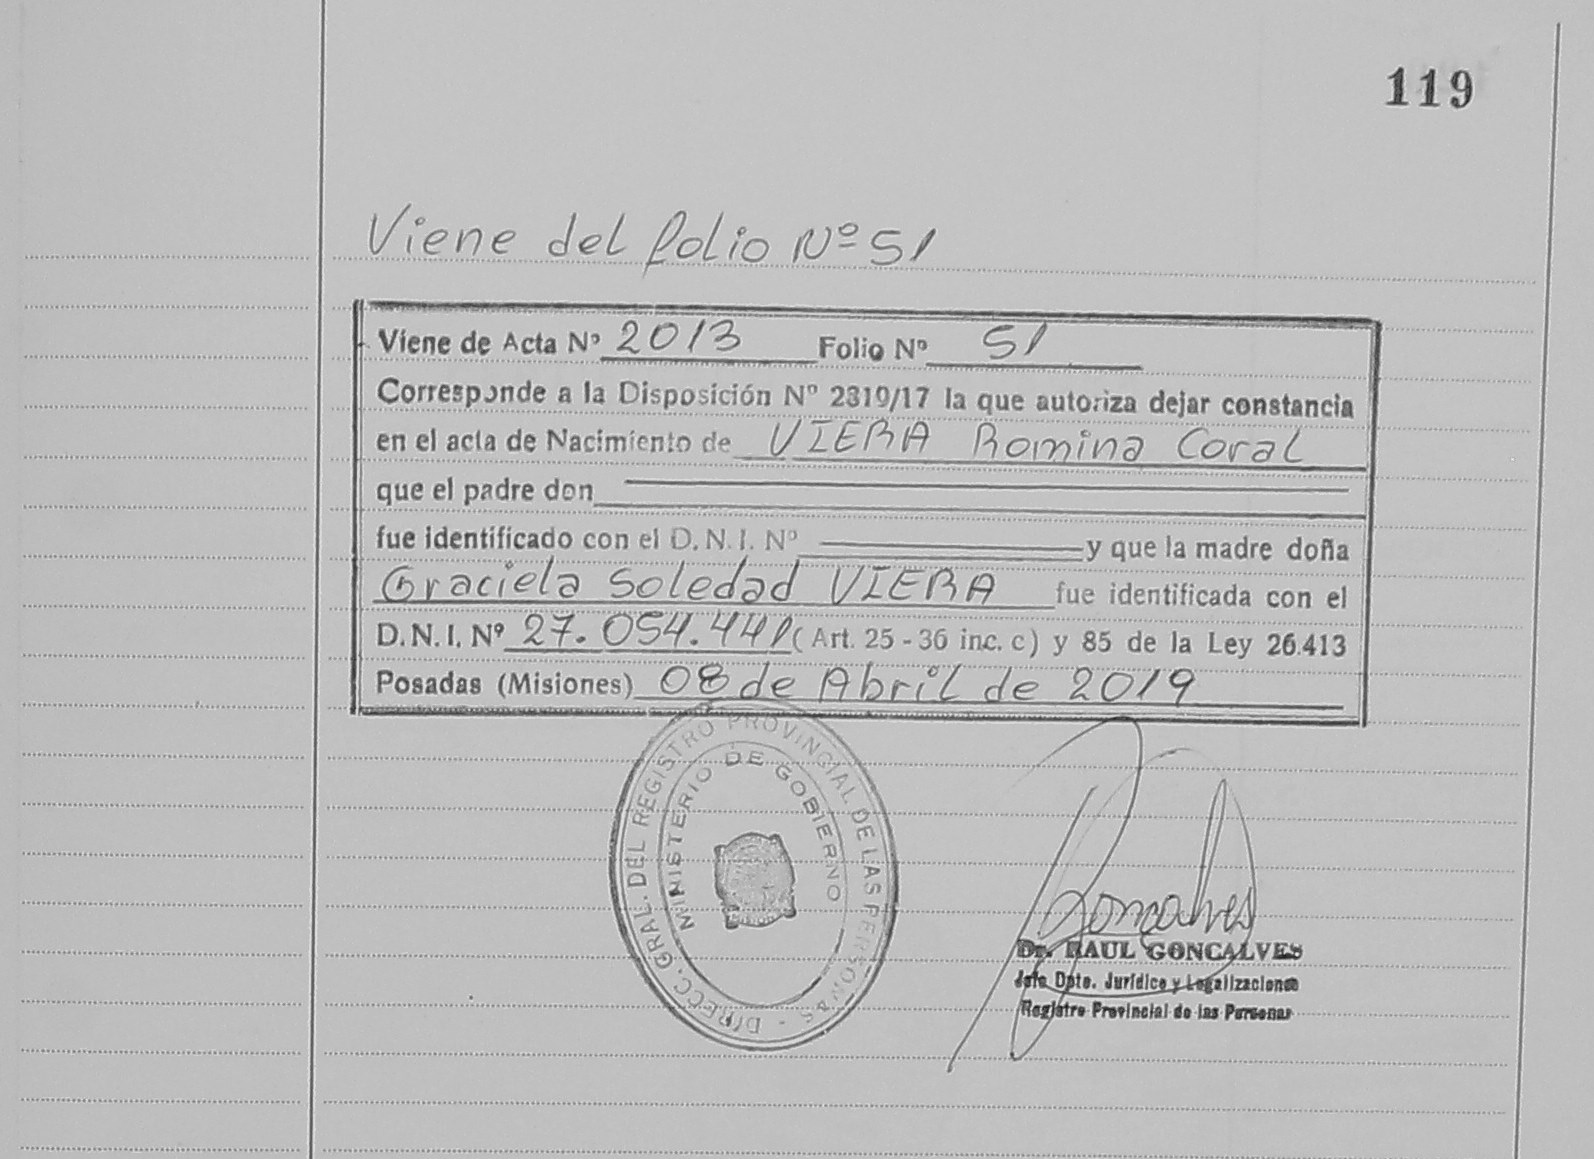 119
Viene del folio Nº 51
Viene de Acta Nº 2013 Folio Nº 51
Corresponde a la Disposición Nº 2319/17 la que autoriza dejar constancia
en el acta de Nacimiento de VIERA Romina Coral
que el padre don
fue identificado con el D.N.I. Nº y que la madre doña
Graciela Soledad VIERA fue identificada con el
D.N.I. Nº 27.054.441 (Art. 25 - 36 inc. c) y 85 de la Ley 26.413
Posadas (Misiones) 08 de Abril de 2019
DIRECC. GRAL. DEL REGISTRO PROVINCIAL DE LAS PERSONAS -
MINISTERIO DE GOBIERNO
Goncalves
Dr. RAUL GONCALVES
Jefe Dpto. Jurídico y Legalizaciones
Registro Provincial de las Personas